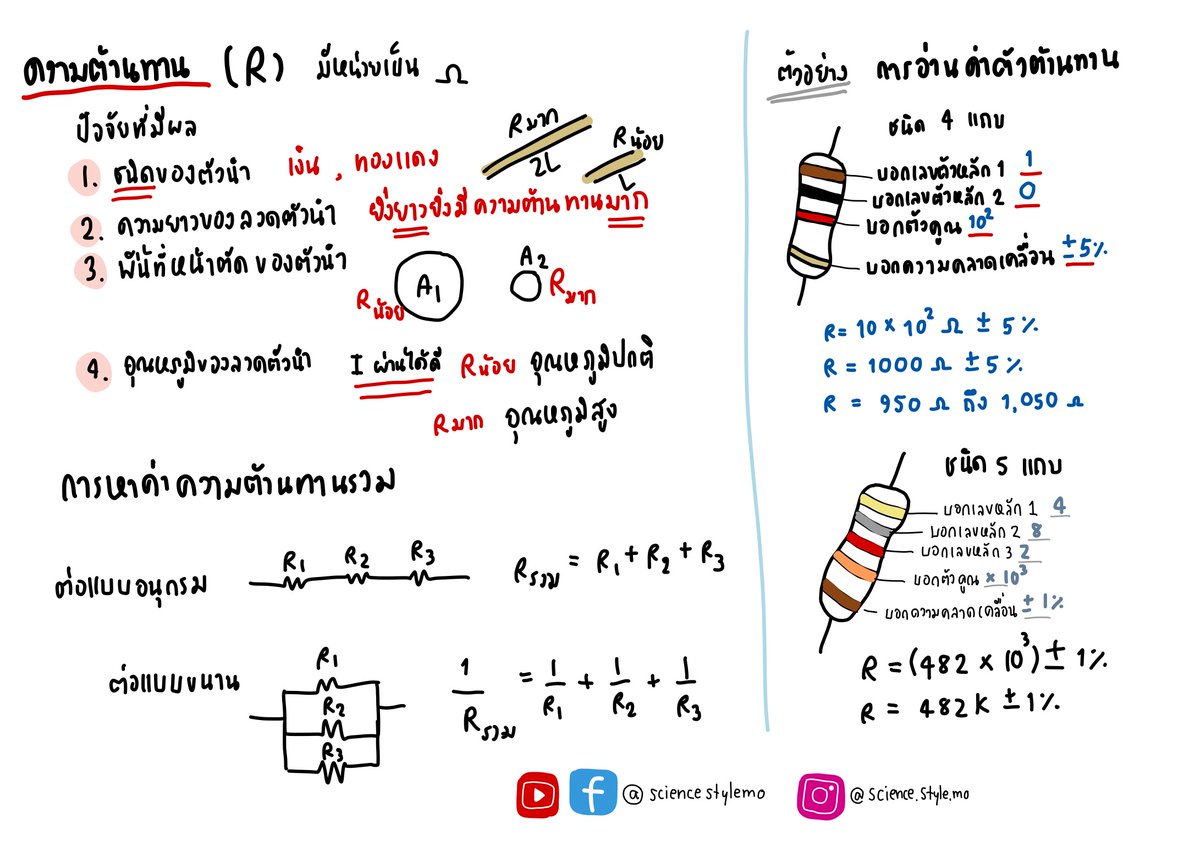 ความต้านทาน (R) มีหน่วยเป็น Ω
ปัจจัยที่มีผล
1. ชนิดของตัวนำ เงิน , ทองแดง
R มาก
2L
R น้อย
L
2. ความยาวของลวดตัวนำ ยิ่งยาวยิ่งมีความต้านทานมาก
3. พื้นที่หน้าตัดของตัวนำ
R น้อย
A1
A2
R มาก
4. อุณหภูมิของลวดตัวนำ I ผ่านได้ดี R น้อย อุณหภูมิปกติ
R มาก อุณหภูมิสูง
การหาค่าความต้านทานรวม
ต่อแบบอนุกรม
R1 R2 R3
Rรวม = R1 + R2 + R3
ต่อแบบขนาน
R1
R2
R3
1/Rรวม = 1/R1 + 1/R2 + 1/R3
ตัวอย่าง การอ่านค่าตัวต้านทาน
ชนิด 4 แถบ
บอกเลขตัวหลัก 1 1
บอกเลขตัวหลัก 2 0
บอกตัวคูณ 10²
บอกความคลาดเคลื่อน ± 5%
R = 10 × 10² Ω ± 5%
R = 1000 Ω ± 5%
R = 950 Ω ถึง 1,050 Ω
ชนิด 5 แถบ
บอกเลขหลัก 1 4
บอกเลขหลัก 2 8
บอกเลขหลัก 3 2
บอกตัวคูณ × 10³
บอกความคลาดเคลื่อน ± 1%
R = (482 × 10³) ± 1%
R = 482K ± 1%
@ sciencestylemo
@ science.style.mo